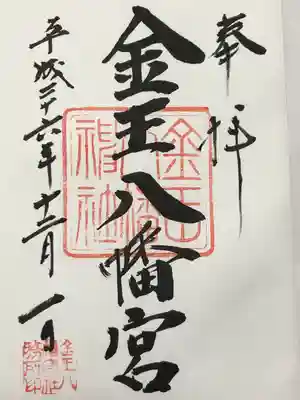 奉拝
金王八幡宮
平成二十六年十二月一日
金王八幡神社